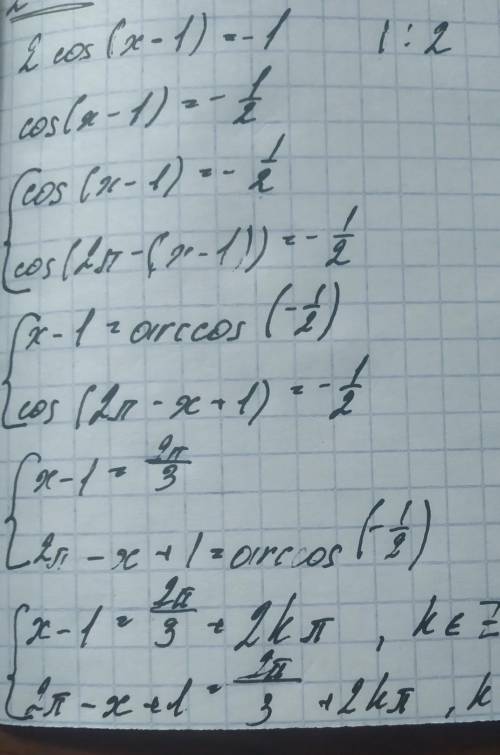 2 cos(x-1) = -1 | : 2
cos(x-1) = -1/2
{ cos(x-1) = -1/2
cos(2π-(x-1)) = -1/2
{ x-1 = arccos(-1/2)
cos(2π-x+1) = -1/2
{ x-1 = 2π/3
2π-x+1 = arccos(-1/2)
{ x-1 = 2π/3 + 2kπ, k∈Z
2π-x+1 = 2π/3 + 2kπ, k